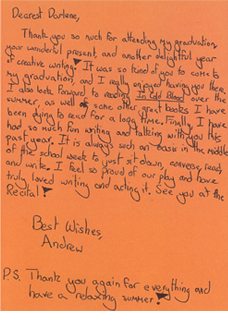 Dearest Darlene,
Thank you so much for attending my graduation,
your wonderful present, and another delightful year
of creative writing. It was so kind of you to come to
my graduation, and I really enjoyed having you there.
I also look forward to reading In Cold Blood over the
summer, as well as some other great books I have
been dying to read for a long time. Finally, I have
had so much fun writing and talking with you this
past year. It is always such an oasis in the middle
of the school week to just sit down, converse, read,
and write. I feel so proud of our play and have
truly loved writing and acting it. See you at the
Recital
Best Wishes,
Andrew
P.S. Thank you again for everything and
have a relaxing summer!